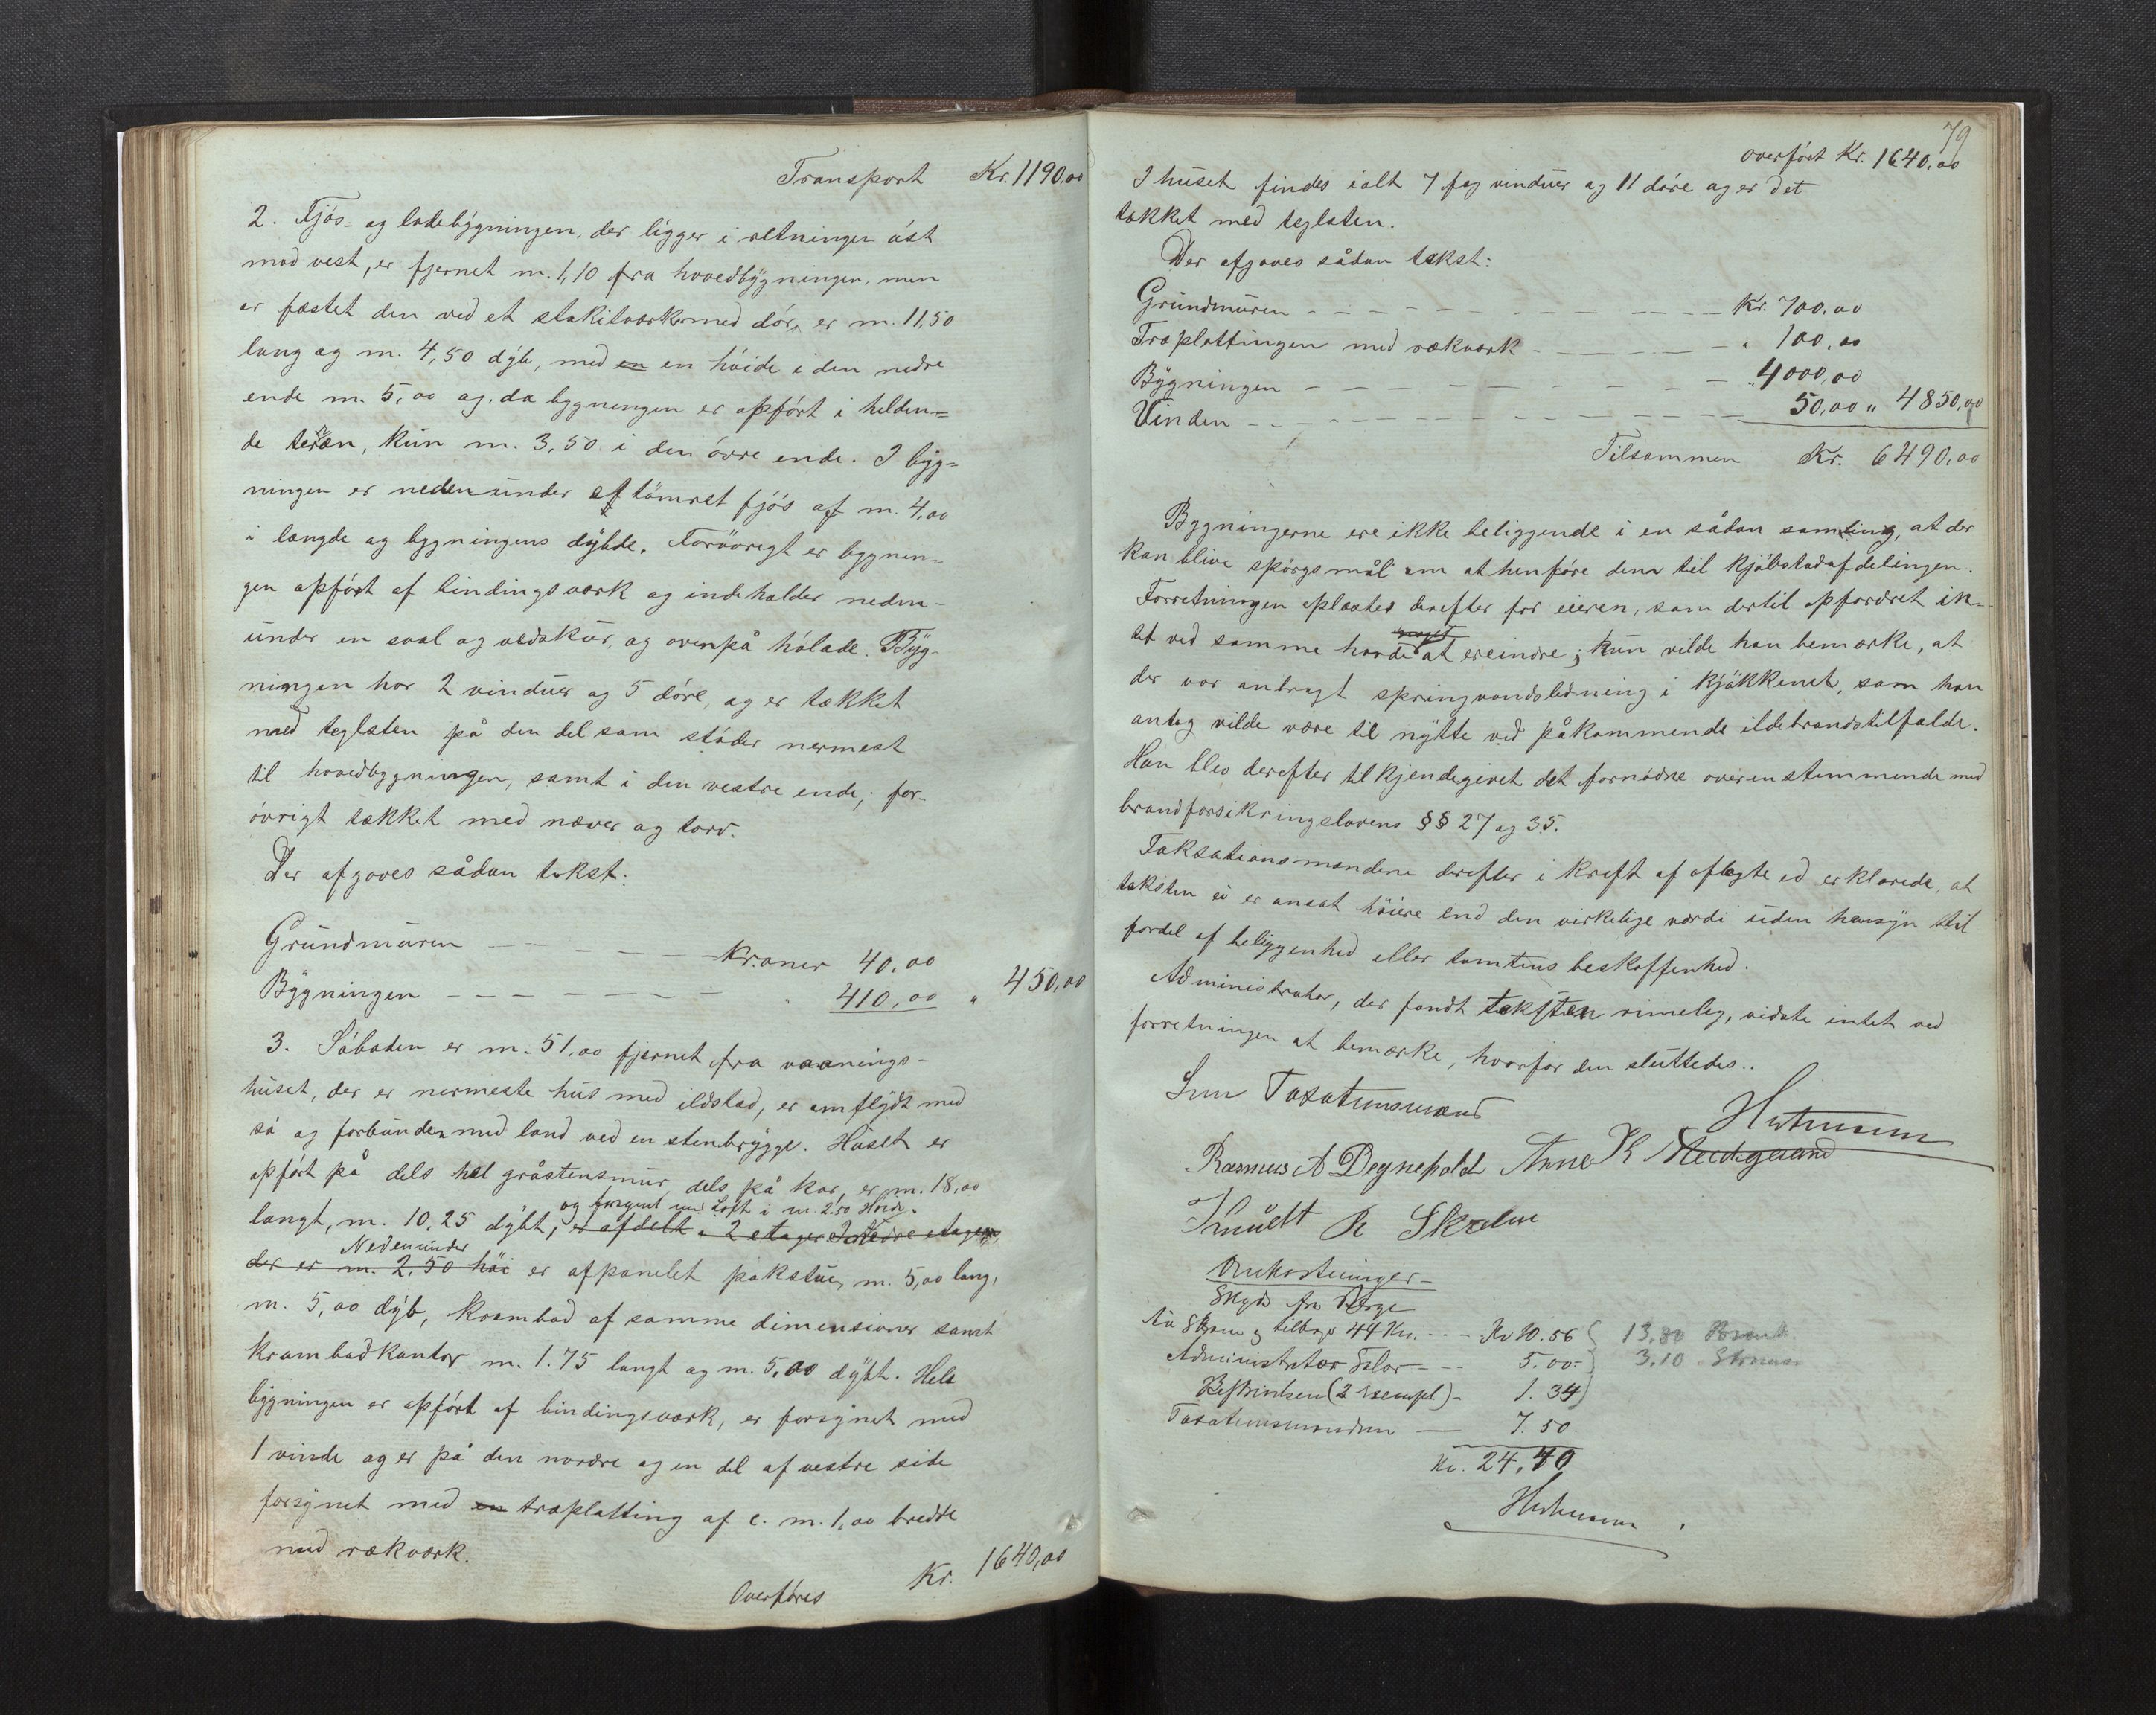 Transport Kr. 1190,00
2. Fjös- og ladebygningen, der ligger i retningen öst
mod vest, er fjernet m. 1,10 fra hovedbygningen, men
er fæstet den ved et stakitværk med dör, er m. 11,50
lang og m. 4,50 dyb, med en en höide i den nedre
ende m. 5,00 og, da bygningen er opfört i helden=
de teræn, kun m. 3,50 i den övre ende. I byg=
ningen er nedenunder et tömret fjös af m. 4,00
i længde og bygningens dybde. Forövrigt er bygnin=
gen opfört af bindingsværk og indeholder neden-
under en sval og vedskur, og ovenpå hölade. Byg-
ningen har 2 vinduer og 5 döre, og er tækket
med teglsten på den del som stöder nermest
til hovedbygningen, samt i den vestre ende; for-
övrigt tækket med næver og torv.
Der afgaves sådan takst:
Grundmuren Kroner 40,00
Bygningen " 410,00 " 450,00
3. Söboden er m. 51,00 fjernet fra vaanings-
huset, der er nermeste hus med ildstad, er omflydt med
sö og forbunden med land ved en stenbrygge. Huset er
opfört på dels hel gråstensmur dels på kar, er m. 18,00
og forsynet med Loft i m. 2.50 Höide.
langt, m. 10,25 dybt, er afdelt i 2 etager I nedre etagen
Nedenunder
der er m. 2,50 höi er afpanelet pakstue, m. 5,00 lang,
m. 5,00 dyb, krambod af samme dimensioner samt
krambodkontor m. 1.75 langt og m. 5,00 dybt. Hele
bygningen er opfört af bindingsværk, er forsynet med
1 vinde og er på den nordre og en del af vestre side
forsynet med en træplatting af c. m. 1,00 bredde
med rækværk.
Overföres Kr. 1640,00
79
overfört Kr. 1640,00
I huset findes ialt 7 fag vinduer og 11 döre og er det
tækket med teglsten.
Der afgaves sådan takst:
Grundmuren Kr. 700,00
Træplattingen med rækværk " 100,00
Bygningen " 4000,00
Vinden 50,00 " 4850,00
Tilsammen Kr. 6490,00
Bygningerne ere ikke beliggende i en sådan samling, at der
kan blive spörgsmål om at henföre dem til kjöbstadafdelingen.
Forretningen oplæstes derefter for eieren, som dertil opfordret in-
noget
tet ved samme havde at ereindre; kun vilde han bemærke, at
der var anbragt springvandsledning i kjökkenet, som han
antog vilde være til nytte ved påkommende ildebrandstilfælde.
Han blev derefter tilkjendegivet det fornödne overenstemmende med
brandforsikringslovens §§ 27 og 35.
Taksationsmændene derefter i kraft af aflagte ed erklærede, at
taksten ei er ansat höiere end den virkelige værdi uden hensyn til
fordel af beliggenhed eller tomtens beskaffenhed.
Administrator, der fandt taksten rimelig, vidste intet ved
forretningen at bemærke, hvorfor den sluttedes..
Som Taxationsmænd
Rasmus A Degnepold Anne K
Knudt R
Omkostninger
Skyds fra
og tilbage 44 Km. Kr 10.56 13,80
Administrator Salær 5.00 3.10
Beskrivelsen (2 Exempl) 1.34
Taxationsmænden 7.50
Kr. 24,40